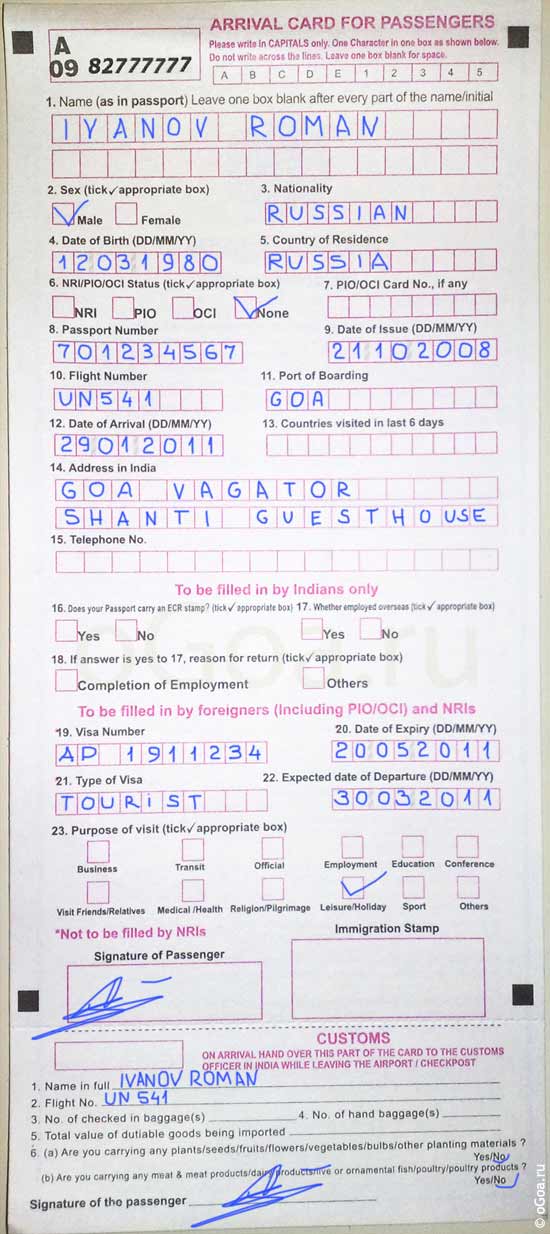 ARRIVAL CARD FOR PASSENGERS
A
09 82777777
Please write in CAPITALS only. One Character in one box as shown below.
Do not write across the lines. Leave one box blank for space.
A B C D E 1 2 3 4 5
1. Name (as in passport) Leave one box blank after every part of the name/initial
IVANOV ROMAN
2. Sex (tick✓appropriate box) 3. Nationality
Male Female RUSSIAN
4. Date of Birth (DD/MM/YY) 5. Country of Residence
12031980 RUSSIA
6. NRI/PIO/OCI Status (tick✓appropriate box) 7. PIO/OCI Card No., if any
NRI PIO OCI None
8. Passport Number 9. Date of Issue (DD/MM/YY)
701234567 21102008
10. Flight Number 11. Port of Boarding
UN541 GOA
12. Date of Arrival (DD/MM/YY) 13. Countries visited in last 6 days
29012011
14. Address in India
GOA VAGATOR
SHANTI GUESTHOUSE
15. Telephone No.
To be filled in by Indians only
16. Does your Passport carry an ECR stamp? (tick✓appropriate box) 17. Whether employed overseas (tick✓appropriate box)
Yes No Yes No
oGoa.ru
18. If answer is yes to 17, reason for return (tick✓appropriate box)
Completion of Employment Others
To be filled in by foreigners (Including PIO/OCI) and NRIs
*19. Visa Number 20. Date of Expiry (DD/MM/YY)
AP 1911234 20052011
*21. Type of Visa 22. Expected date of Departure (DD/MM/YY)
TOURIST 30032011
23. Purpose of visit (tick✓appropriate box)
Business Transit Official Employment Education Conference
Visit Friends/Relatives Medical /Health Religion/Pilgrimage Leisure/Holiday Sport Others
*Not to be filled by NRIs Immigration Stamp
Signature of Passenger
CUSTOMS
ON ARRIVAL HAND OVER THIS PART OF THE CARD TO THE CUSTOMS
OFFICER IN INDIA WHILE LEAVING THE AIRPORT / CHECKPOST
1. Name in full IVANOV ROMAN
2. Flight No. UN 541
3. No. of checked in baggage(s) 4. No. of hand baggage(s)
5. Total value of dutiable goods being imported
6. (a) Are you carrying any plants/seeds/fruits/flowers/vegetables/bulbs/other planting materials ?
Yes/No
(b) Are you carrying any meat & meat products/dairy products/live or ornamental fish/poultry/poultry products ?
Yes/No
Signature of the passenger
© oGoa.ru